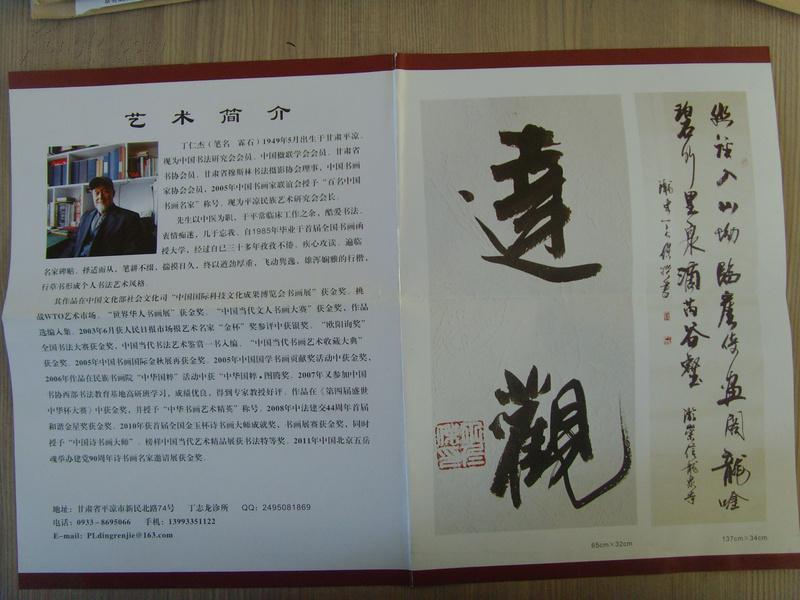 艺术简介
丁仁杰（笔名 霖石）1949年5月出生于甘肃平凉。
现为中国书法研究会会员、中国楹联学会会员、甘肃省
书协会员、甘肃省穆斯林书法摄影协会理事，中国书画
家协会会员，2005年中国书画家联谊会授予“百名中国
书画名家”称号。现为平凉民族艺术研究会会长。
先生以中医为职，于平常临床工作之余，酷爱书法。
衷情痴迷，几于忘我。自1985年毕业于首届全国书画函
授大学，经过自己三十多年孜孜不倦、疾心攻读。遍临
名家碑贴。择适而从，笔耕不缀，揣摸日久，终以遒劲厚重，飞动隽逸，雄浑娴雅的行楷，
行草书形成个人书法艺术风格。
其作品在中国文化部社会文化司“中国国际科技文化成果博览会书画展”获金奖。挑
战WTO艺术市场。“世界华人书画展”获金奖。“中国当代文人书画大赛”获金奖，作品
选编入集。2003年6月获人民日报市场报艺术名家“金杯”奖参评中获银奖。“欧阳询奖”
全国书法大赛获金奖，中国当代书法艺术鉴赏一书入编。“中国当代书画艺术收藏大典”
获金奖。2005年中国书画国际金秋展再获金奖。2005年中国国学书画贡献奖活动中获金奖，
2006年作品在民族书画院“中华国粹”活动中获“中华国粹·图腾奖。2007年又参加中国
书协西部书法教育基地高研班学习，成绩优良，得到专家教授好评。作品在《第四届盛世
中华杯大赛》中获金奖，并授予“中华书画艺术精英”称号。2008年中法建交44周年首届
和谐金星奖获金奖。2010年获首届全国金玉杯诗书画大师成就奖，书画展赛获金奖，同时
授予“中国诗书画大师”。榜样中国当代艺术精品展获书法特等奖。2011年中国北京五岳
魂举办建党90周年诗书画名家邀请展获金奖。
地址：甘肃省平凉市新民北路74号 丁志龙诊所 QQ：2495081869
电话：0933-8695066 手机：13993351122
E-mail：PLdingrenjie@163.com
達
觀
65cm×32cm
幽径入山坳臨崖倚畫閣龍吟
碧水里泉滴芮谷壑
游崇信龍泉寺
137cm×34cm